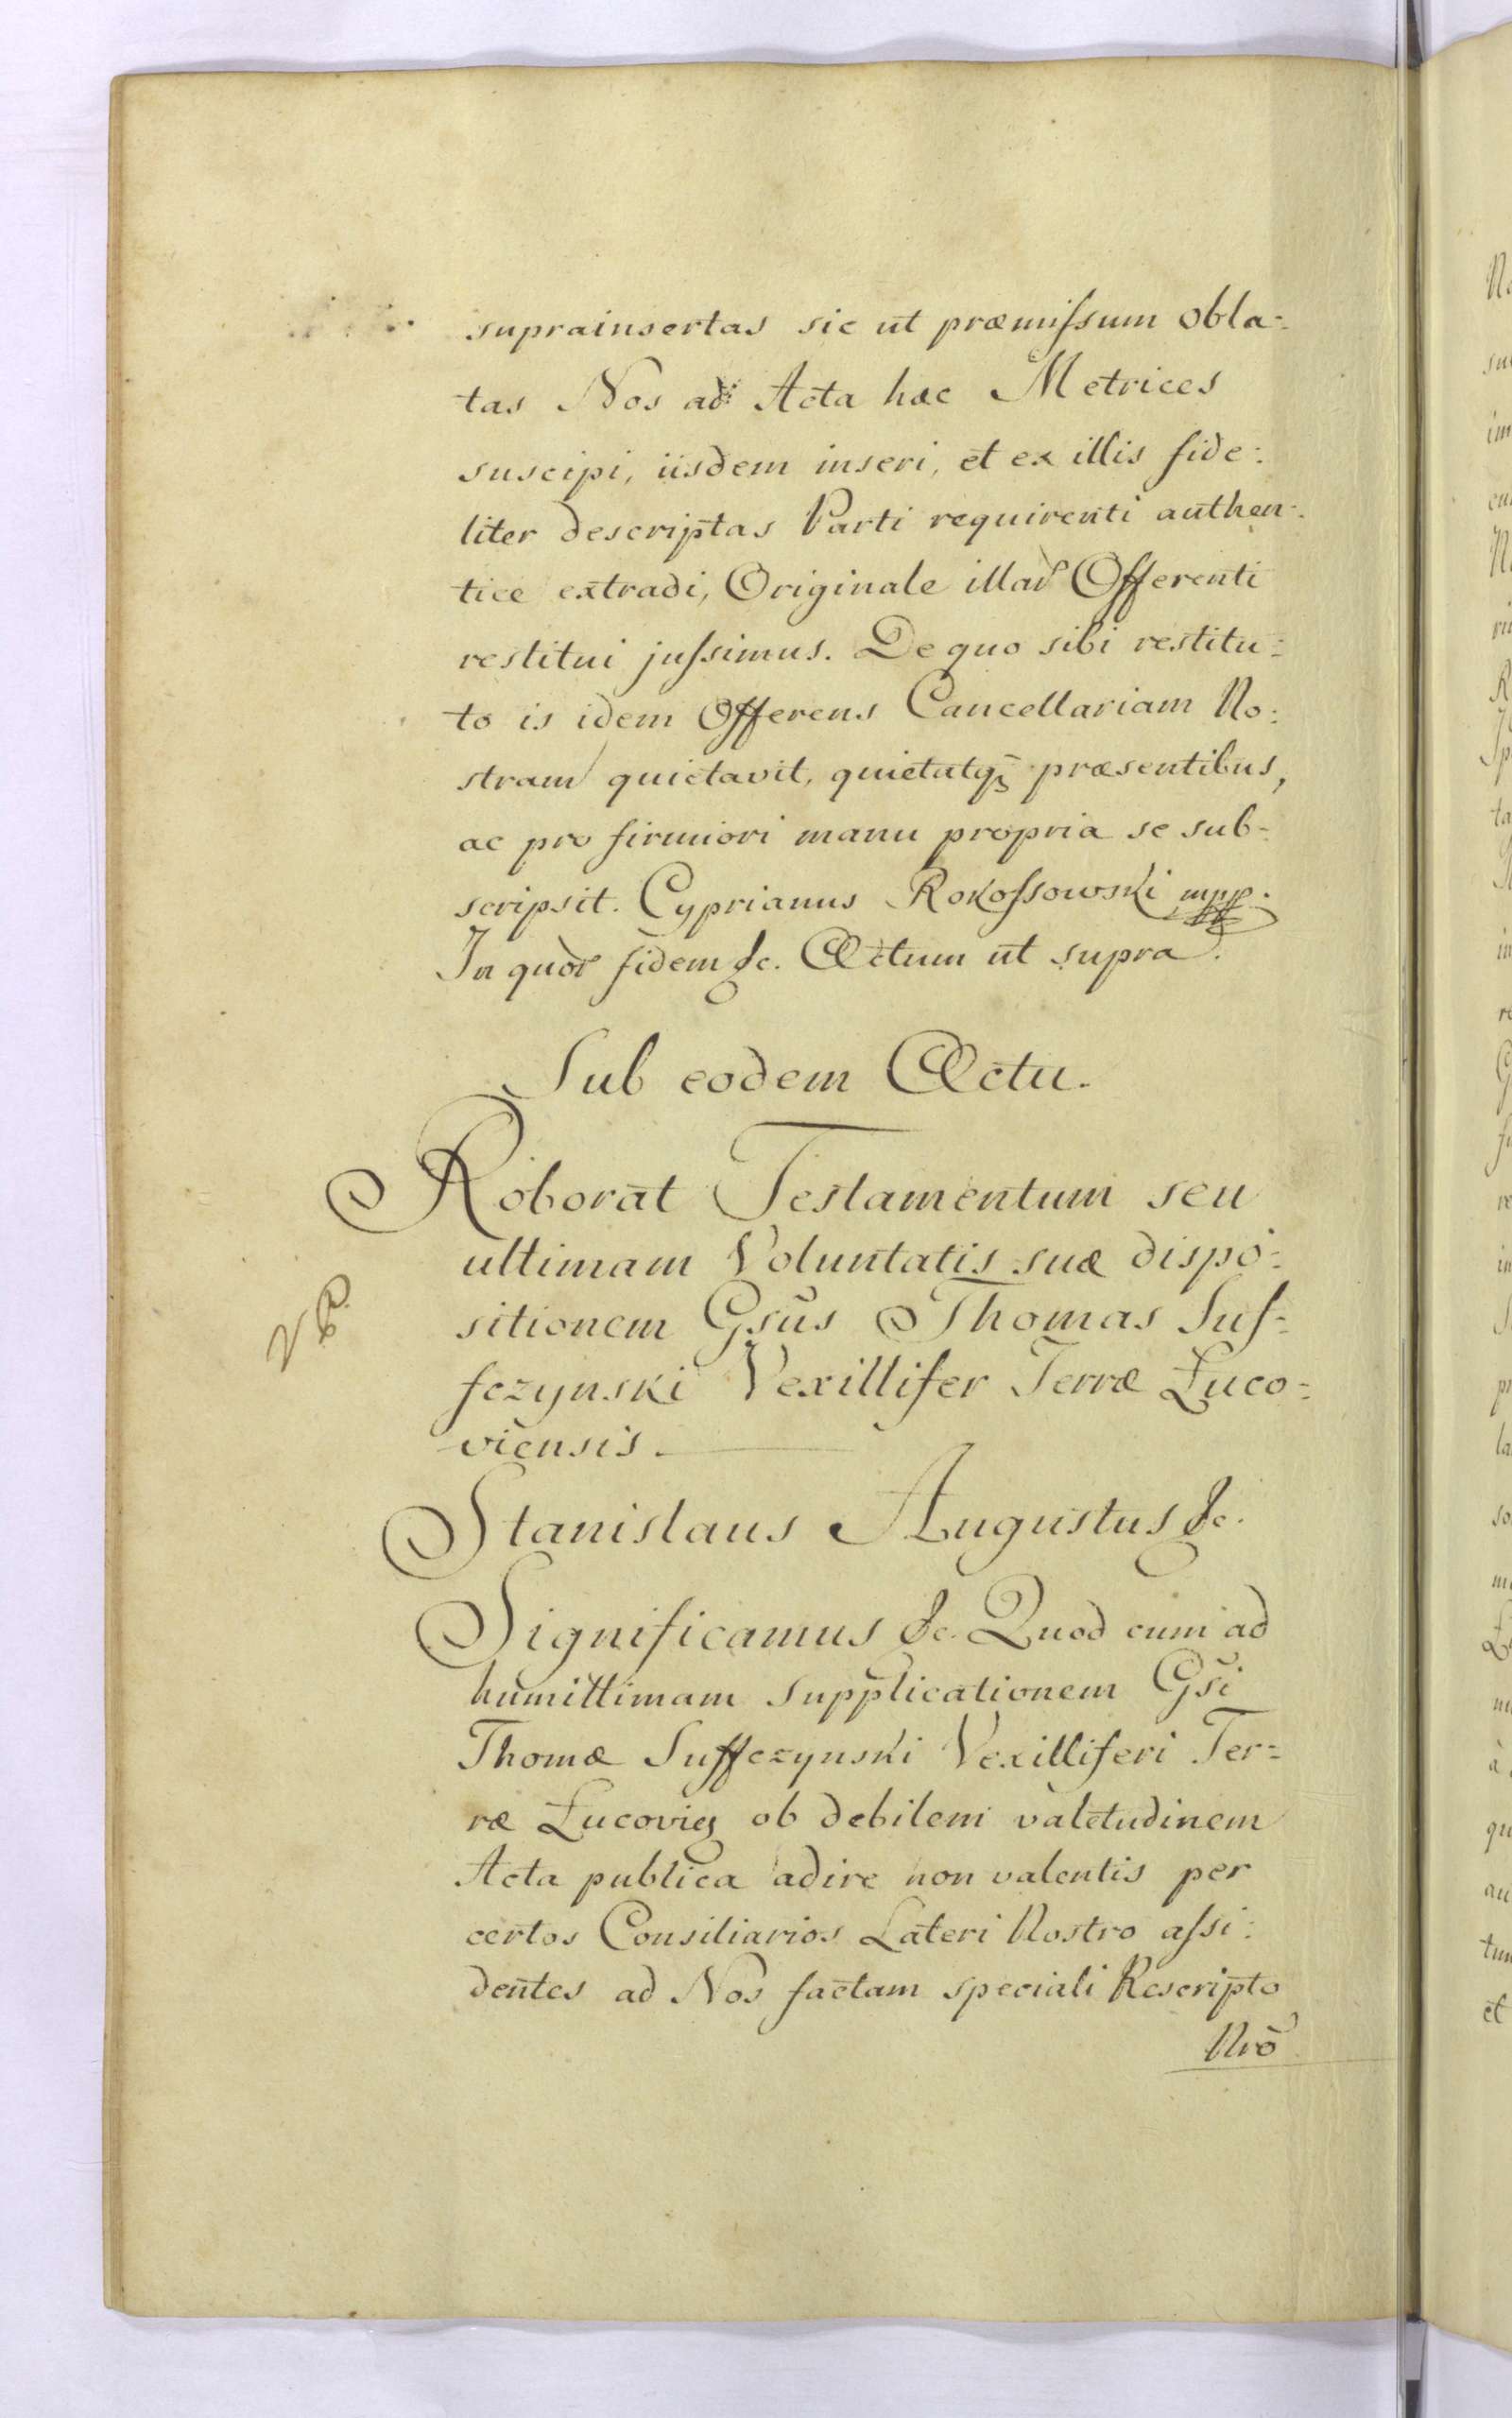 suprainsertas sic ut præmissum obla-
tas Nos ad Acta hæc Metrices
suscipi, iisdem inseri, et ex illis fide-
liter descriptas Parti requirenti authen-
tice extradi, Originale illar Offerenti
restitui jussimus. De quo sibi restitu-
to is idem Offerens Cancellariam No-
stram quietavit, quietatq; præsentibus,
ac pro firmiori manu propria se sub-
scripsit. Cyprianus Rokossowski mpp.
In quor fidem &c. Actum ut supra.
Sub eodem Actu.
Roborat Testamentum seu
ultimam Voluntatis suæ dispo-
sitionem Gsus Thomas Suf-
fczynski Vexillifer Terræ Luco-
viensis.
Stanislaus Augustus &c.
Significamus &c. Quod cum ad
humillimam Supplicationem Gsi
Thomæ Suffczynski Vexilliferi Ter-
ræ Łucovien ob debilem valetudinem
Acta publica adire non valentis per
certos Consiliarios Lateri Nostro assi-
dentes ad Nos factam speciali Rescripto
Nrō